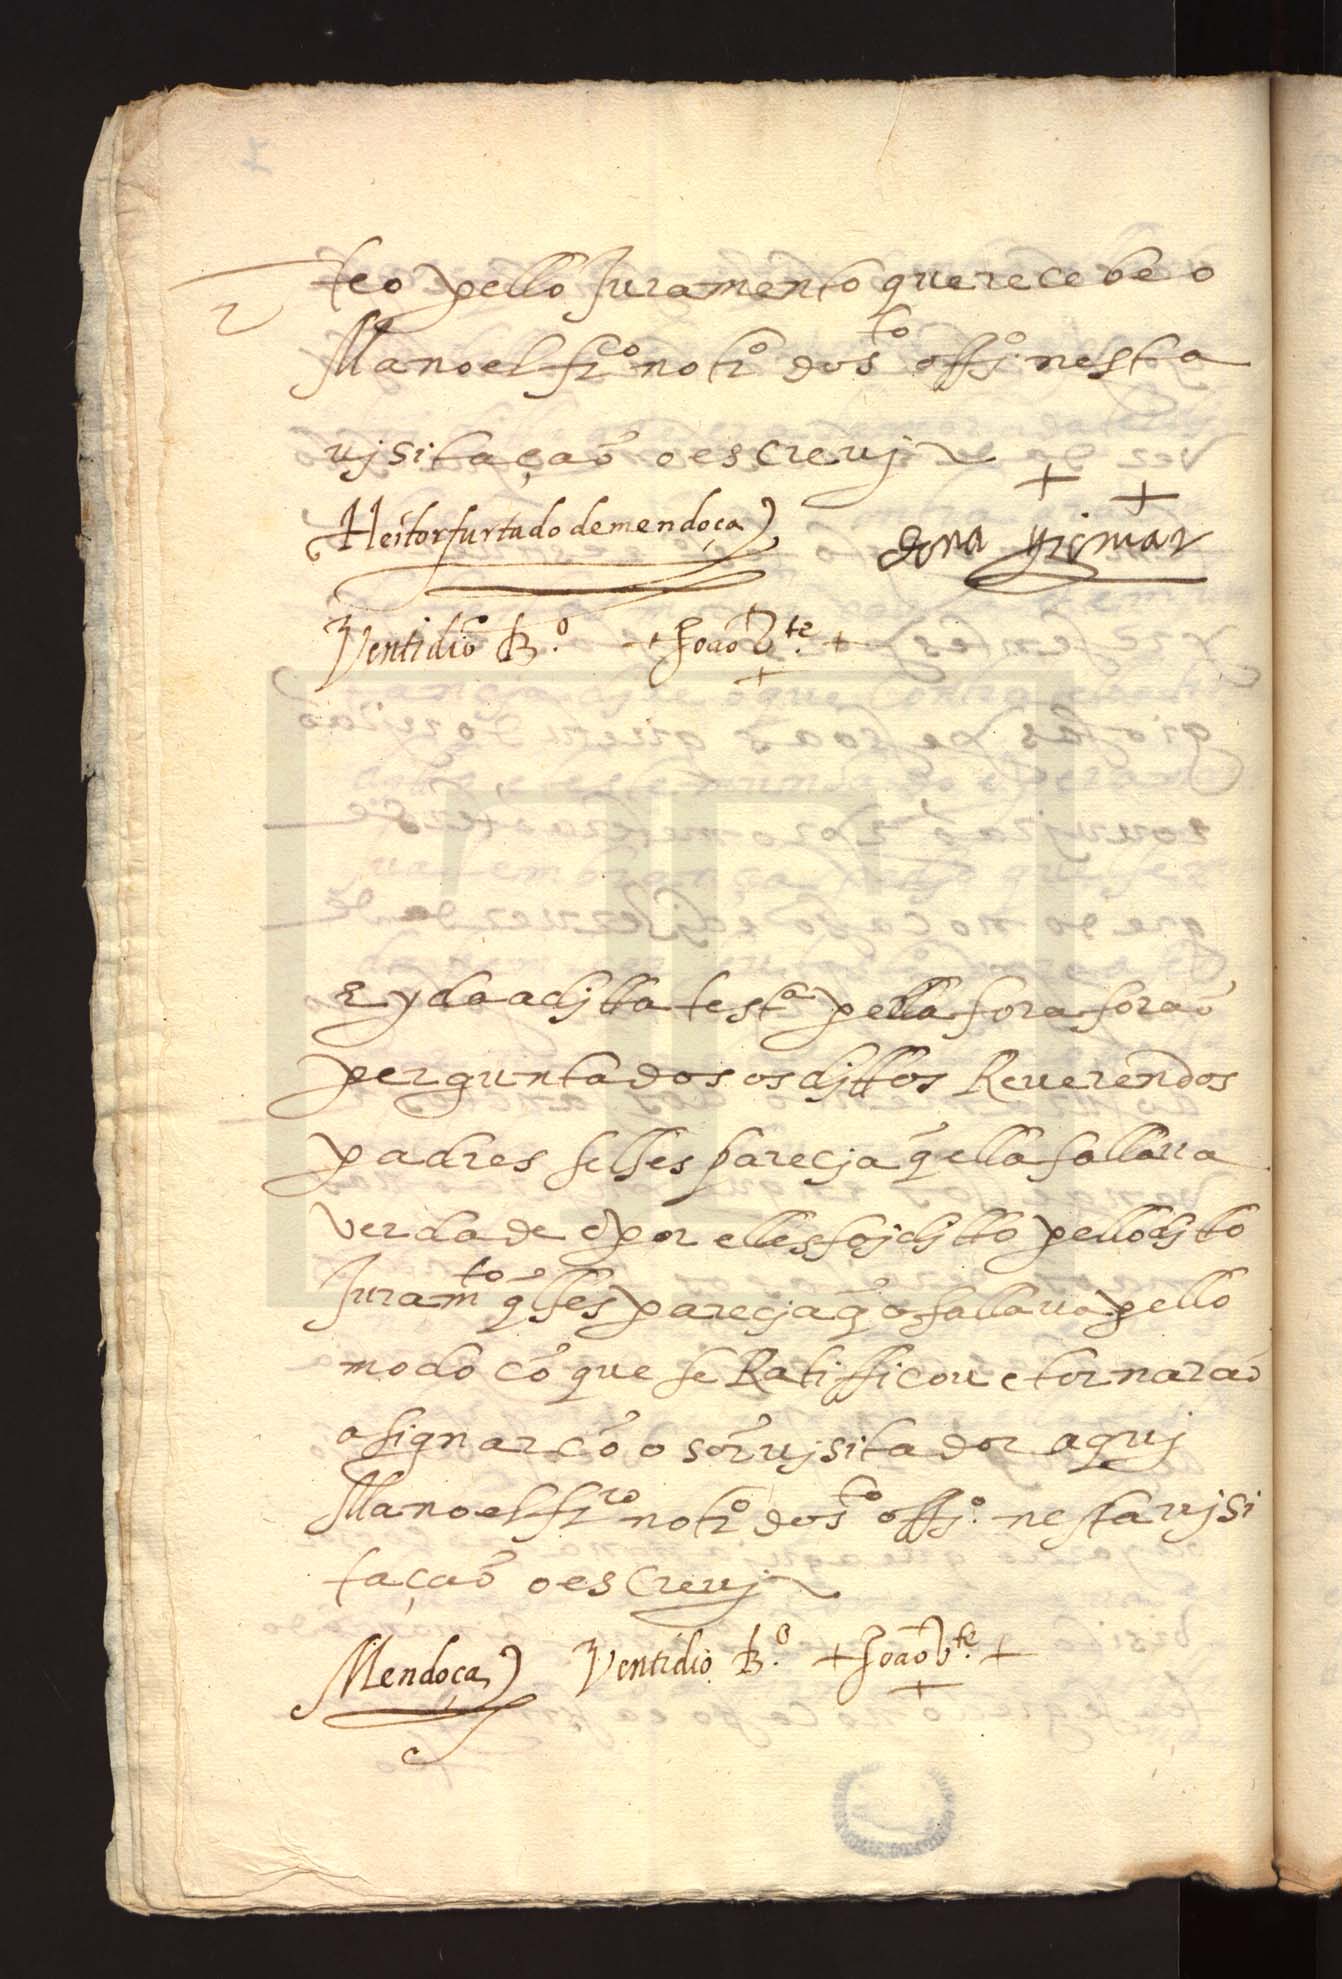 teo pello Juramento que recebeo
Manoel frco notro do sto offo nesta
vjsitaçaõ o escrevj
Heitor furtado de mendoça dona
Ventidio B.o + Joaõ + +
E yda a djtta testa pella fora foraõ
perguntados os djttos Reverendos
padres se lhes parecja q̃ ella fallava
verdade e por elles foj djtto pello djtto
Juramto q̃ lhes parecja q̃ o fallava pello
modo cõ que se Ratifficou e tornaraõ
a signar cõ o sõr vjsitador aquj
Manoel frco notro do sto offo nesta vjsi
taçaõ o escrevj
Mendoça Ventidio B.o + Joaõ + +